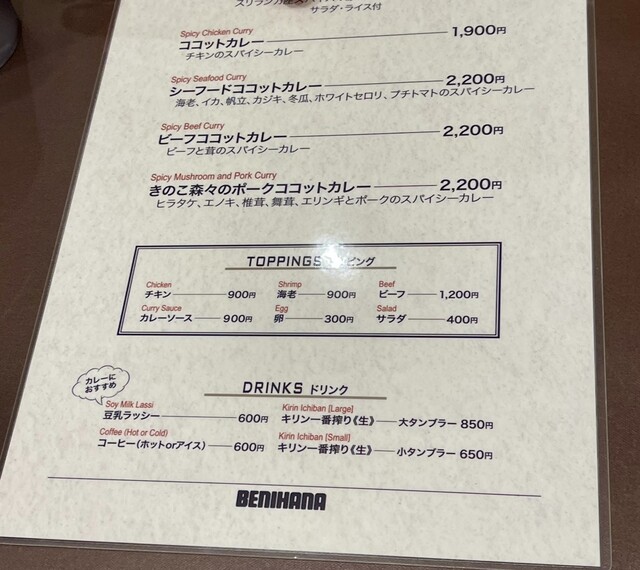 サラダ・ライス付
Spicy Chicken Curry
ココットカレー 1,900円
チキンのスパイシーカレー
Spicy Seafood Curry
シーフードココットカレー 2,200円
海老、イカ、帆立、カジキ、冬瓜、ホワイトセロリ、プチトマトのスパイシーカレー
Spicy Beef Curry
ビーフココットカレー 2,200円
ビーフと茸のスパイシーカレー
Spicy Mushroom and Pork Curry
きのこ森々のポークココットカレー 2,200円
ヒラタケ、エノキ、椎茸、舞茸、エリンギとポークのスパイシーカレー
TOPPINGS ピング
Chicken Shrimp Beef
チキン 900円 海老 900円 ビーフ 1,200円
Curry Sauce Egg Salad
カレーソース 900円 卵 300円 サラダ 400円
カレーに
おすすめ
DRINKS ドリンク
Soy Milk Lassi Kirin Ichiban [Large]
豆乳ラッシー 600円 キリン一番搾り《生》 大タンブラー 850円
Coffee (Hot or Cold) Kirin Ichiban [Small]
コーヒー(ホットorアイス) 600円 キリン一番搾り《生》 小タンブラー 650円
BENIHANA